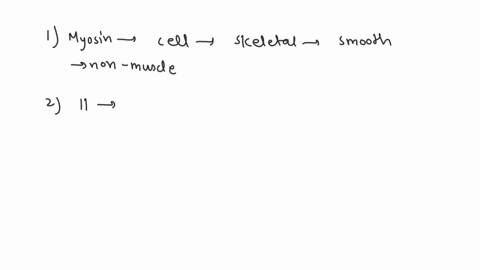 1) Myosin → cell → skeletal → smooth
→ non-muscle
2) II →